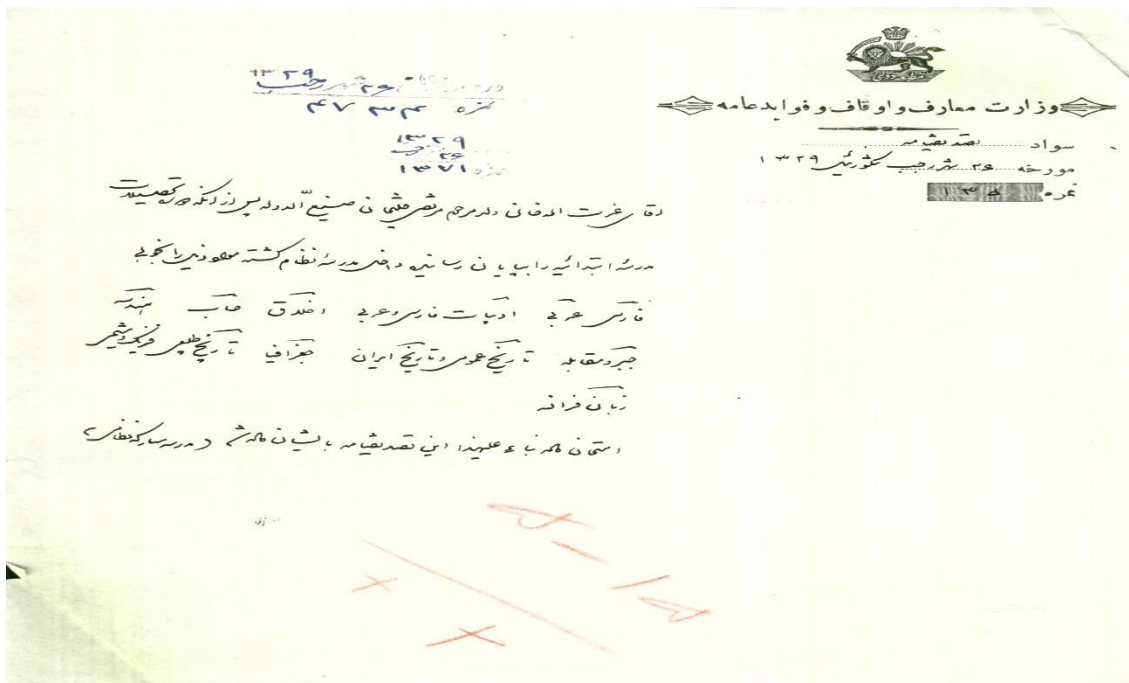 وزارت معارف و اوقاف و فواید عامه
سواد تصدیقنامه
مورخه ۲۶ شهر رجب ۱۳۲۹
نمره ۱۳۵
۲۶ شهر رجب ۱۳۲۹
نمره ۴۷۳۴
۱۳۲۹
۲۶ رجب
نمره ۱۳۷۱
آقای عزت الله خان ولد مرحوم مرتضی قلیخان صنیع الدوله پس از آنکه تحصیلات
مدرسه ابتدائیه را بپایان رسانیده داخل مدرسه نظام گشته مواد ذیل را بخوبی
فارسی عربی ادبیات فارسی و عربی اخلاق حساب هندسه
جبر و مقابله تاریخ عمومی و تاریخ ایران جغرافیا تاریخ طبیعی فیزیک و شیمی
زبان فرانسه
امتحان داده بناء علیهذا این تصدیقنامه بایشان داده شد (مدرسه مبارکه نظامی)